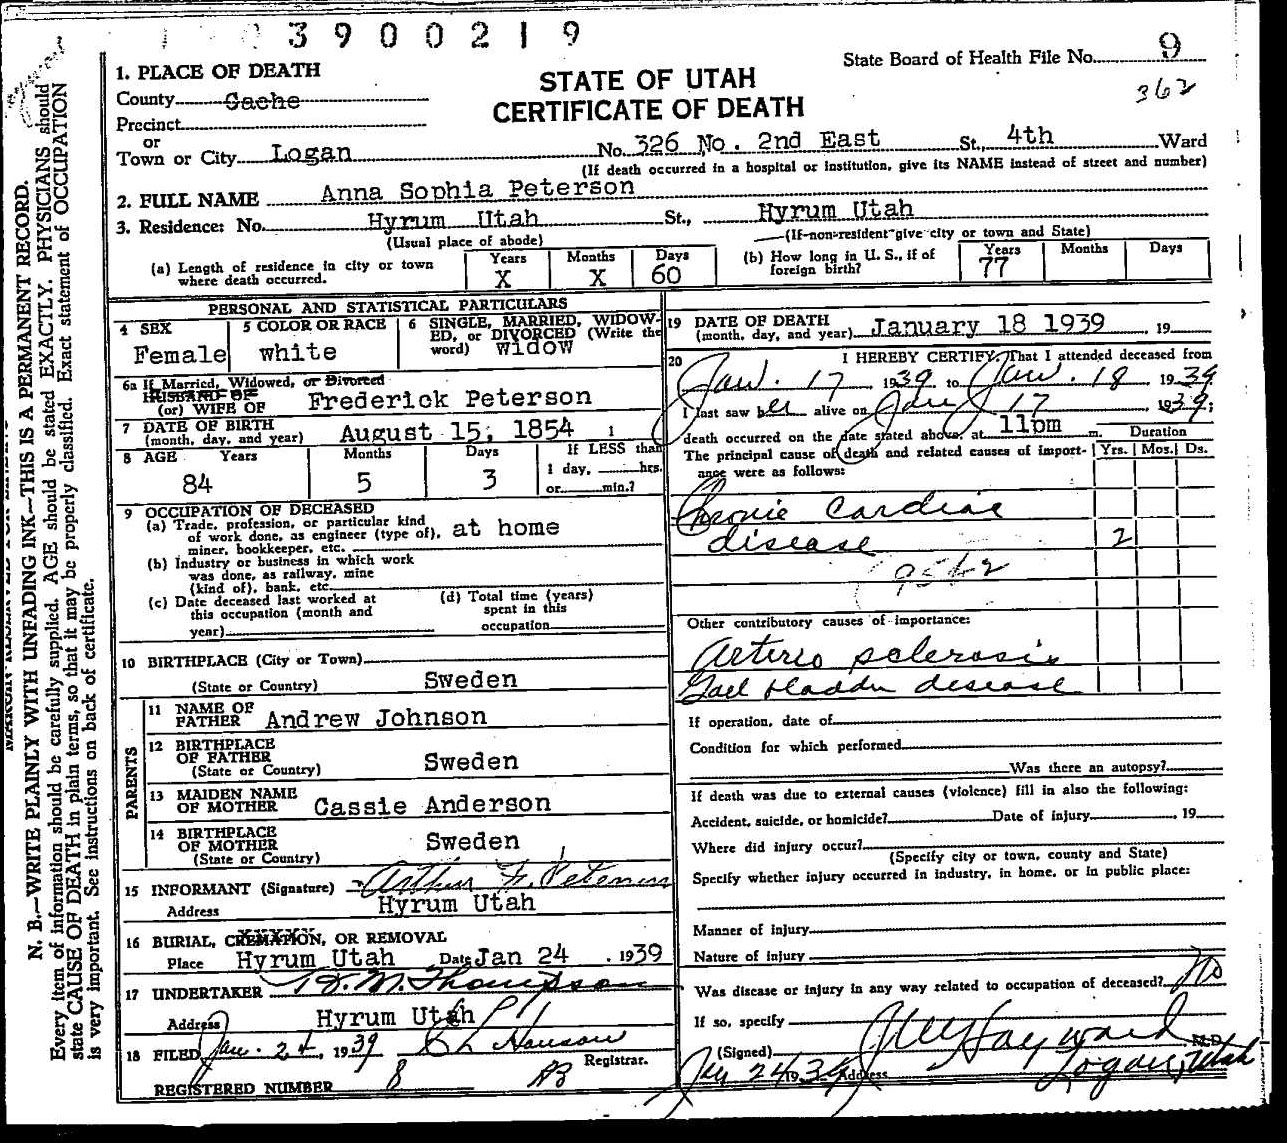 3900219
State Board of Health File No. 9
362
STATE OF UTAH
CERTIFICATE OF DEATH
1. PLACE OF DEATH
County Cache
Precinct
or
Town or City Logan No. 326 No. 2nd East St., 4th Ward
(If death occurred in a hospital or institution, give its NAME instead of street and number)
2. FULL NAME Anna Sophia Peterson
3. Residence: No. Hyrum Utah St., Hyrum Utah
(Usual place of abode) (If non-resident give city or town and State)
(a) Length of residence in city or town where death occurred. Years X Months X Days 60
(b) How long in U. S., if of foreign birth? Years 77 Months Days
PERSONAL AND STATISTICAL PARTICULARS
4 SEX Female
5 COLOR OR RACE white
6 SINGLE, MARRIED, WIDOW-
ED, or DIVORCED (Write the
word) Widow
6a If Married, Widowed, or Divorced
HUSBAND OF
(or) WIFE OF Frederick Peterson
7 DATE OF BIRTH
(month, day, and year) August 15, 1854
8 AGE Years 84 Months 5 Days 3
If LESS than
1 day, hrs.
or min.?
9 OCCUPATION OF DECEASED
(a) Trade, profession, or particular kind
of work done, as engineer (type of), at home
miner, bookkeeper, etc.
(b) Industry or business in which work
was done, as railway, mine
(kind of), bank, etc.
(c) Date deceased last worked at
this occupation (month and
year)
(d) Total time (years)
spent in this
occupation
10 BIRTHPLACE (City or Town)
(State or Country) Sweden
PARENTS
11 NAME OF
FATHER Andrew Johnson
12 BIRTHPLACE
OF FATHER
(State or Country) Sweden
13 MAIDEN NAME
OF MOTHER Cassie Anderson
14 BIRTHPLACE
OF MOTHER
(State or Country) Sweden
15 INFORMANT (Signature) Arthur F. Peterson
Address Hyrum Utah
16 BURIAL, CREMATION, OR REMOVAL
Place Hyrum Utah Date Jan 24 , 1939
17 UNDERTAKER H. M. Thompson
Address Hyrum Utah
18 FILED Jan. 24, 1939 C L Hanson
Registrar.
REGISTERED NUMBER 8
19 DATE OF DEATH
(month, day, and year) January 18 1939 19
20 I HEREBY CERTIFY, That I attended deceased from
Jan. 17 1939 to Jan. 18 1939
I last saw her alive on Jan 17 1939;
death occurred on the date stated above, at 11pm m.
The principal cause of death and related causes of import-
ance were as follows:
Duration
Yrs. Mos. Ds.
Chronic Cardiac
disease 2
Other contributory causes of importance:
Arterio sclerosis
Gall bladder disease
If operation, date of
Condition for which performed
Was there an autopsy?
If death was due to external causes (violence) fill in also the following:
Accident, suicide, or homicide? Date of injury , 19
Where did injury occur?
(Specify city or town, county and State)
Specify whether injury occurred in industry, in home, or in public place:
Manner of injury
Nature of injury
Was disease or injury in any way related to occupation of deceased? No
If so, specify
(Signed) Hayward M.D.
24 1939 Address Logan, Utah
N. B.—WRITE PLAINLY WITH UNFADING INK—THIS IS A PERMANENT RECORD.
Every item of information should be carefully supplied. AGE should be stated EXACTLY. PHYSICIANS should
state CAUSE OF DEATH in plain terms, so that it may be properly classified. Exact statement of OCCUPATION
is very important. See instructions on back of certificate.